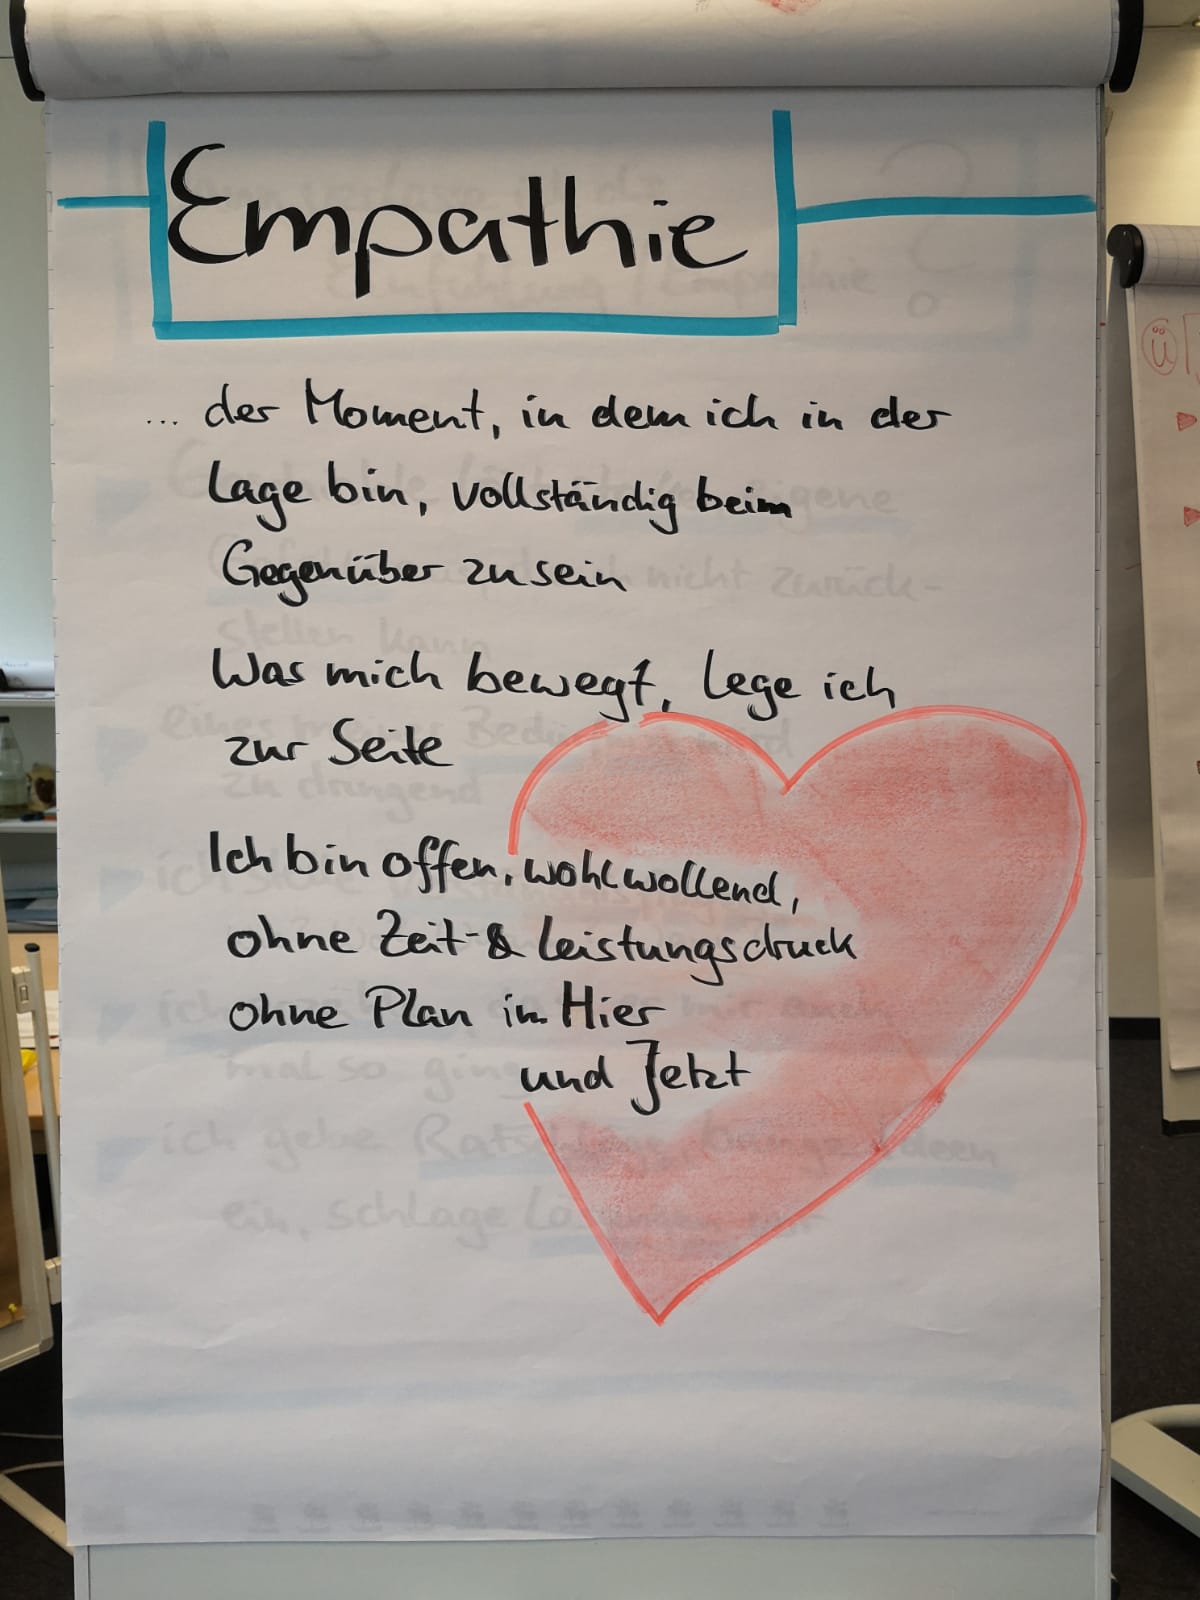 Empathie
... der Moment, in dem ich in der
Lage bin, vollständig beim
Gegenüber zu sein
Was mich bewegt, lege ich
zur Seite
Ich bin offen, wohlwollend,
ohne Zeit- & Leistungsdruck
ohne Plan im Hier
und Jetzt